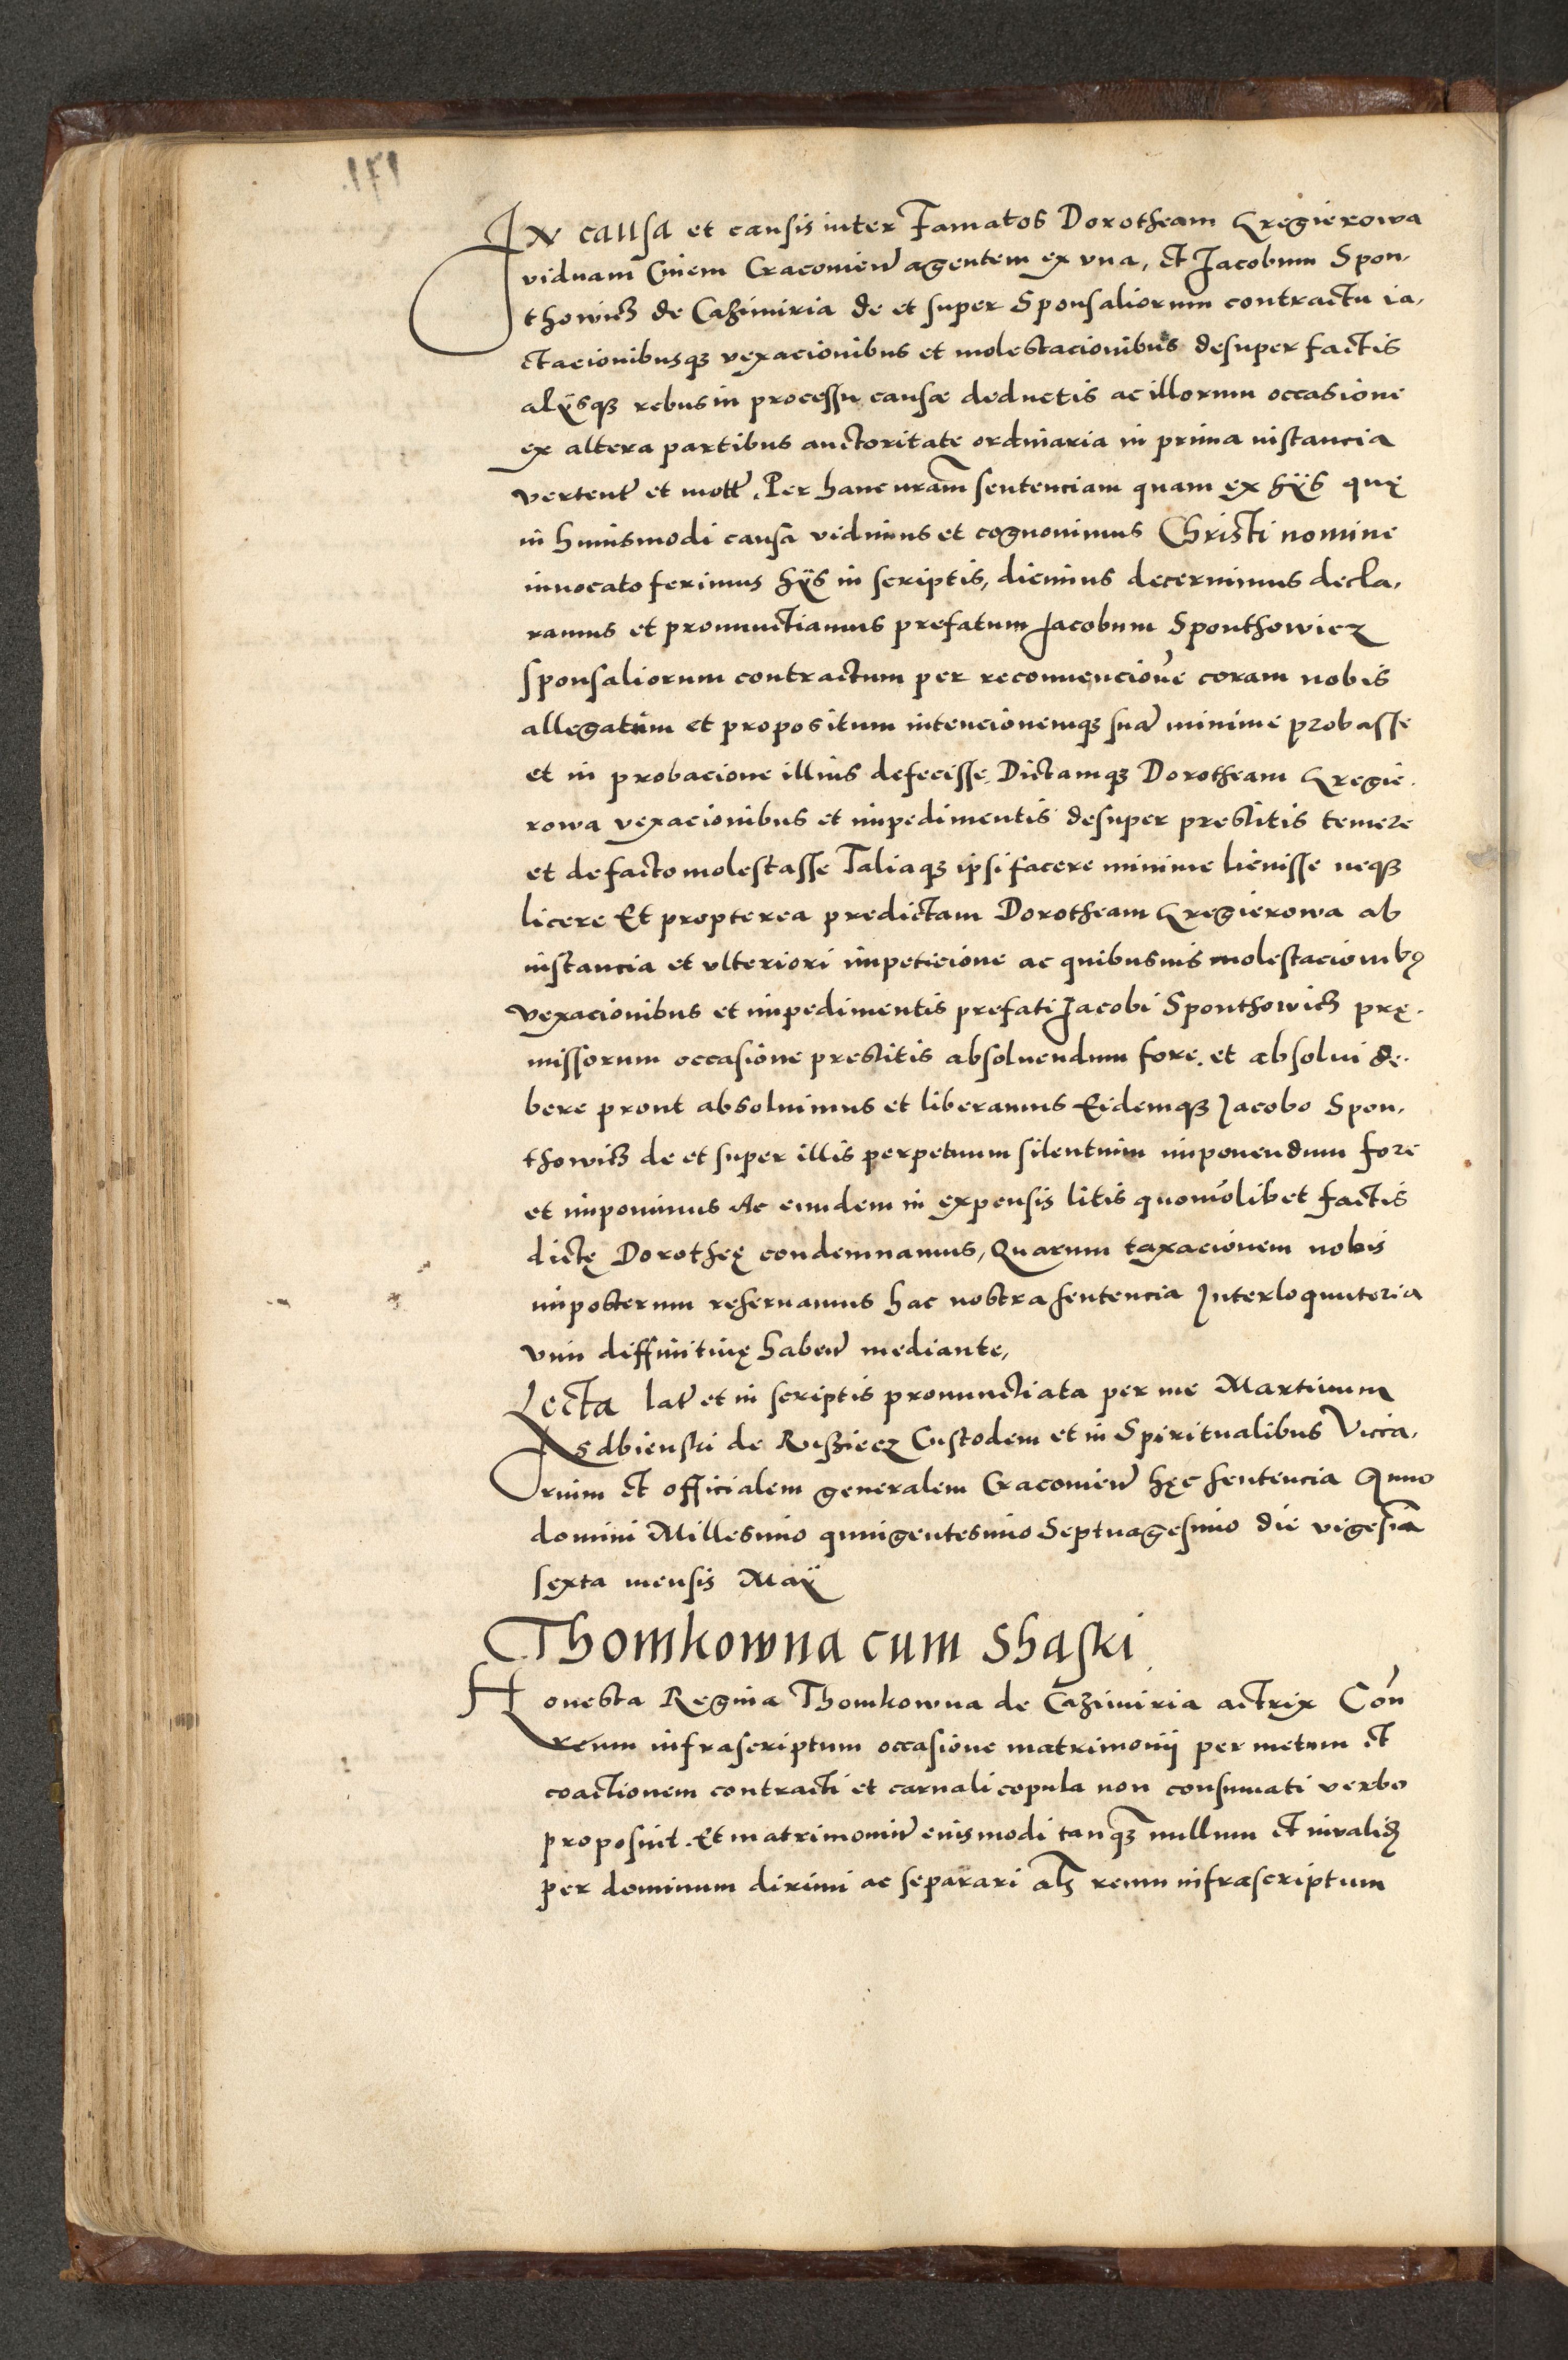 171.
In causa et causis inter Famatos Dorotheam Gregierowa
viduam Civem Cracovien̄ agentem ex vna, et Jacobum Spon,
thowicz de Cazimiria de et super Sponsaliorum contractu ia,
ctacionibusqꝫ vexacionibus et molestacionibus desuper factis
alÿsqꝫ rebus in processu causæ deductis ac illorum occasione
ex altera partibus auctoritate ordinaria in prima instancia
verten̄t et mott̄. Per hanc nrām sentenciam quam ex hÿs quę
in huiusmodi causa vidimus et cognouimus Christi nomine
innocato ferimus hÿs in scriptis, dicimus decernimus decla,
ramus et pronunctiamus prefatum Jacobum Sponthowicz
sponsaliorum contractum per reconuencionē coram nobis
allegatum et propositum intencionemqꝫ suā minime probasse
et in probacione illius defecisse, Dictamqꝫ Dorotheam Gregie.
rowa vexacionibus et impedimentis desuper prestitis temere
et de facto molestasse Taliaqꝫ ipsi facere minime licuisse neqꝫ
licere Et propterea predictam Dorotheam Gregierowa ab
instancia et vlteriori impeticione ac quibusuis molestacionibꝰ
vexacionibus et impedimentis prefati Jacobi Sponthowicz prę.
missorum occasione prestitis absoluendum fore. et absolui de.
bere prout absoluimus et liberamus Eidemqꝫ Jacobo Spon,
thowicz de et super illis perpetuum silentium imponendum fore
et imponimus Ac eundem in expensis litis quomōlibet factis
dictę Dorotheę condemnamus, Quarum taxacionem nobis
imposterum reseruamus hac nostra sentencia Interloquutoria
vim diffinitiuę haben̄ mediante,
Lecta lat̄ et in scriptis pronunctiata per me Martinum
Isdbienski de Rusziecz Custodem et in Spiritualibus Vicca,
rium et officialem generalem Cracovien̄ hęc sentencia Anno
domini Millesimo quingentesimo Septuagesimo die vigesīa
sexta mensis Maÿ
Thomkowna cum Shaski
Honesta Regina Thomkowna de Cazimiria actrix Coñ
reum infrascriptum occasione matrimonij per metum et
coactionem contracti et carnali copula non consumati verbo
proposuit. Et matrimoniū eiusmodi tanqꝫ nullum et inualidꝫ
per dominum dirimi ac separari als̄ reum infrascriptum